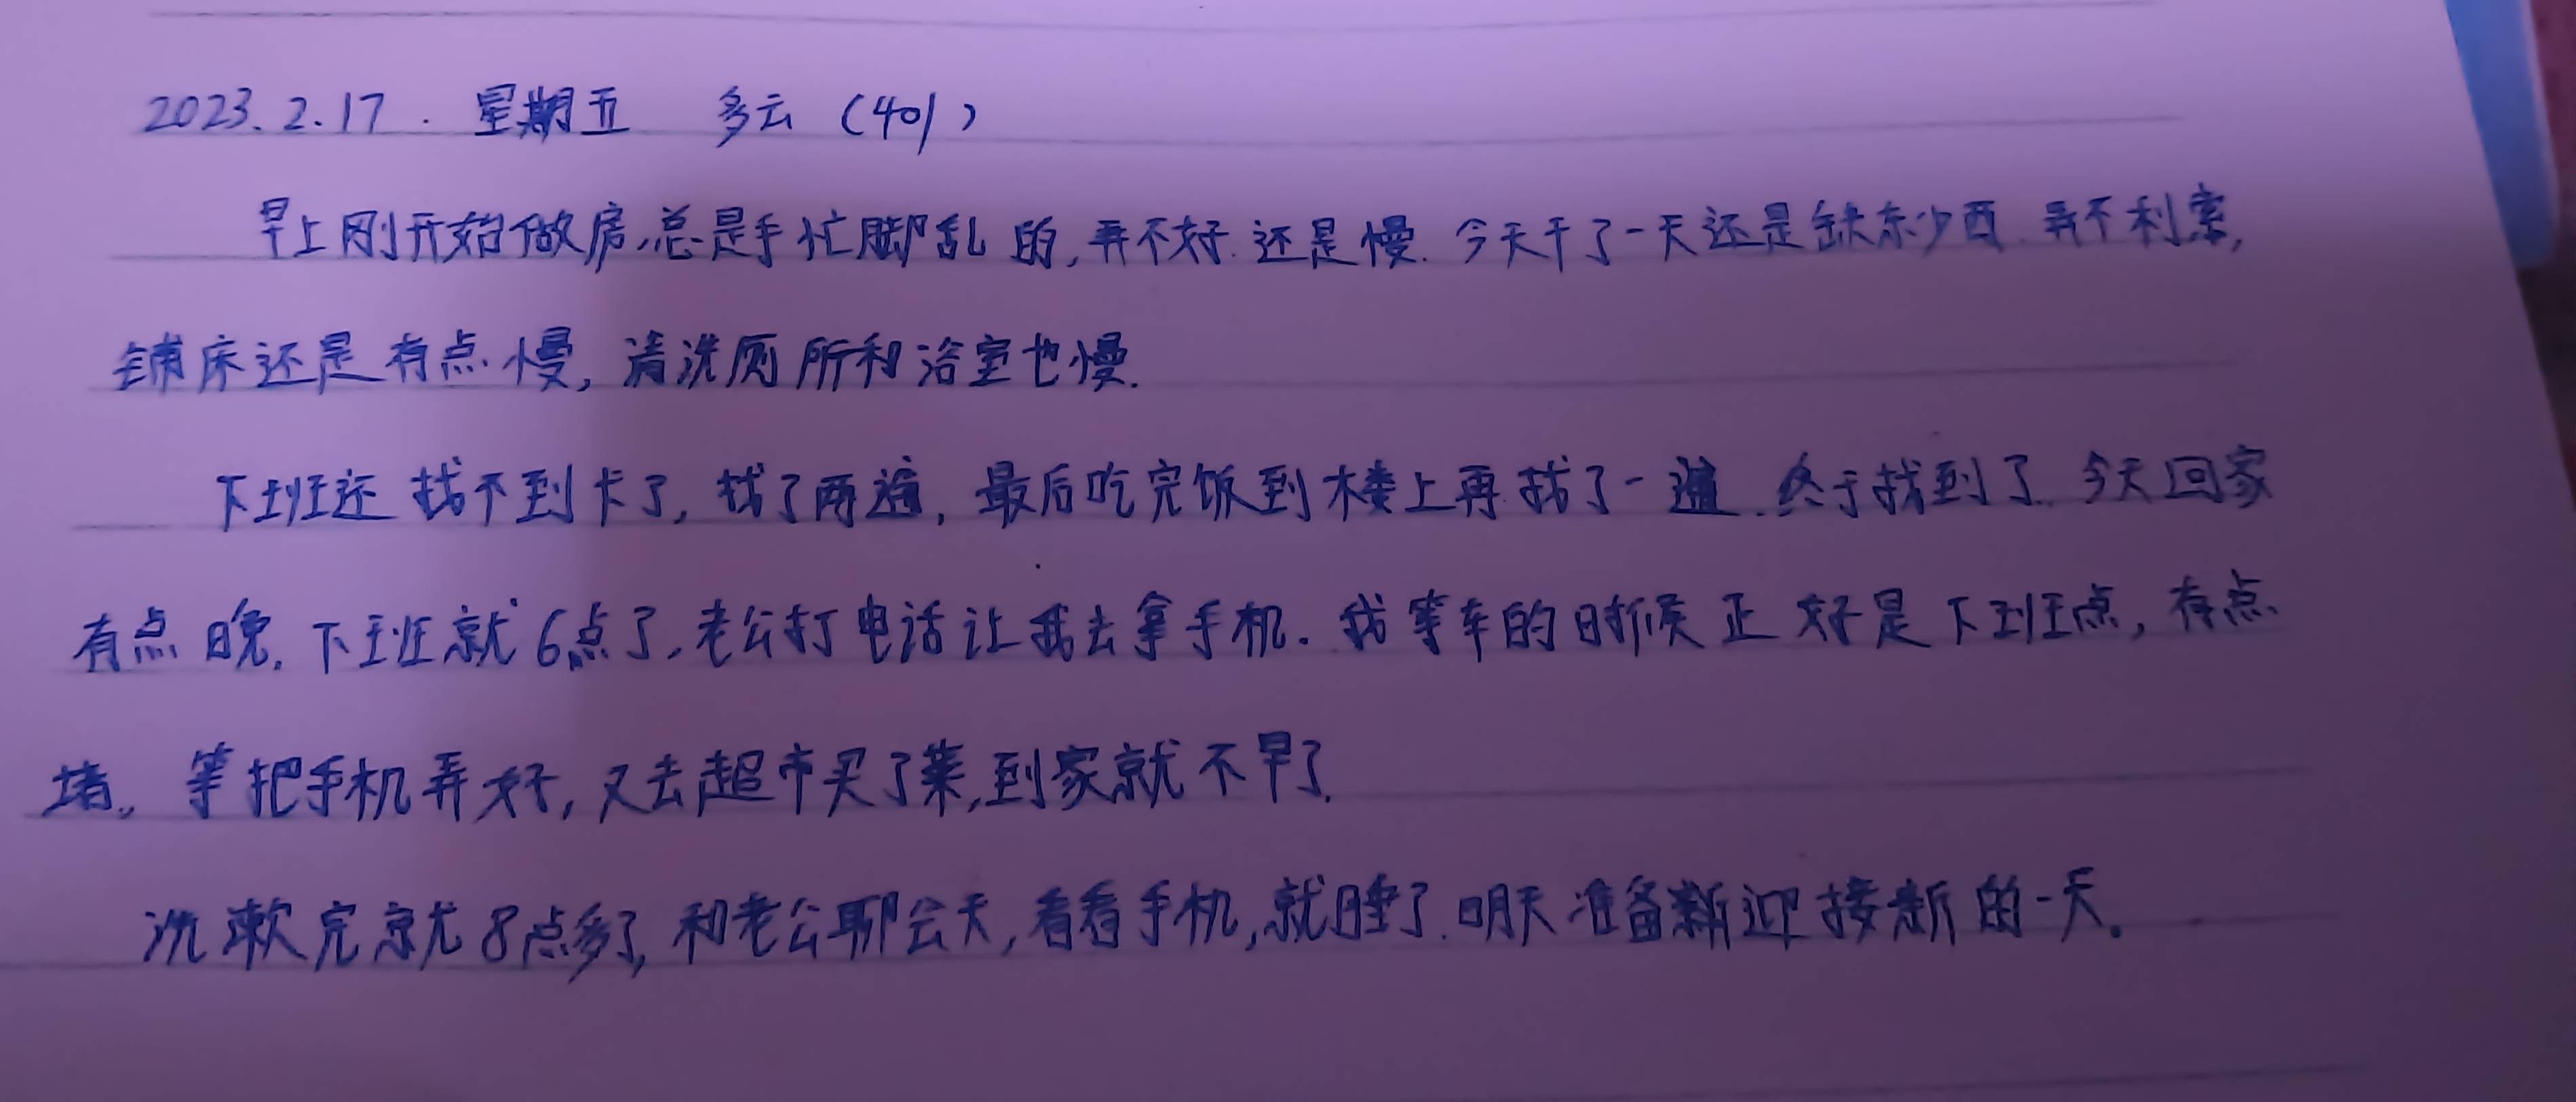 2023.2.17. 星期五 多云 (401)
早上刚开始做房,总是手忙脚乱的,弄不好.还是慢.今天干了一天还是缺东少西.弄不利索,
铺床还是有点慢,清洗厕所和浴室也慢.
下班还找不到卡了,找了两遍,最后吃完饭到楼上再找了一遍.终于找到了.今天回家
有点晚.下班就6点了,老公打电话让我去拿手机.我等车的时候正好是下班点,有点
堵。等把手机弄好,又去超市买了菜,到家就不早了.
洗漱完就8点多了,和老公聊会天,看看手机,就睡了.明天准备新迎接新的一天。